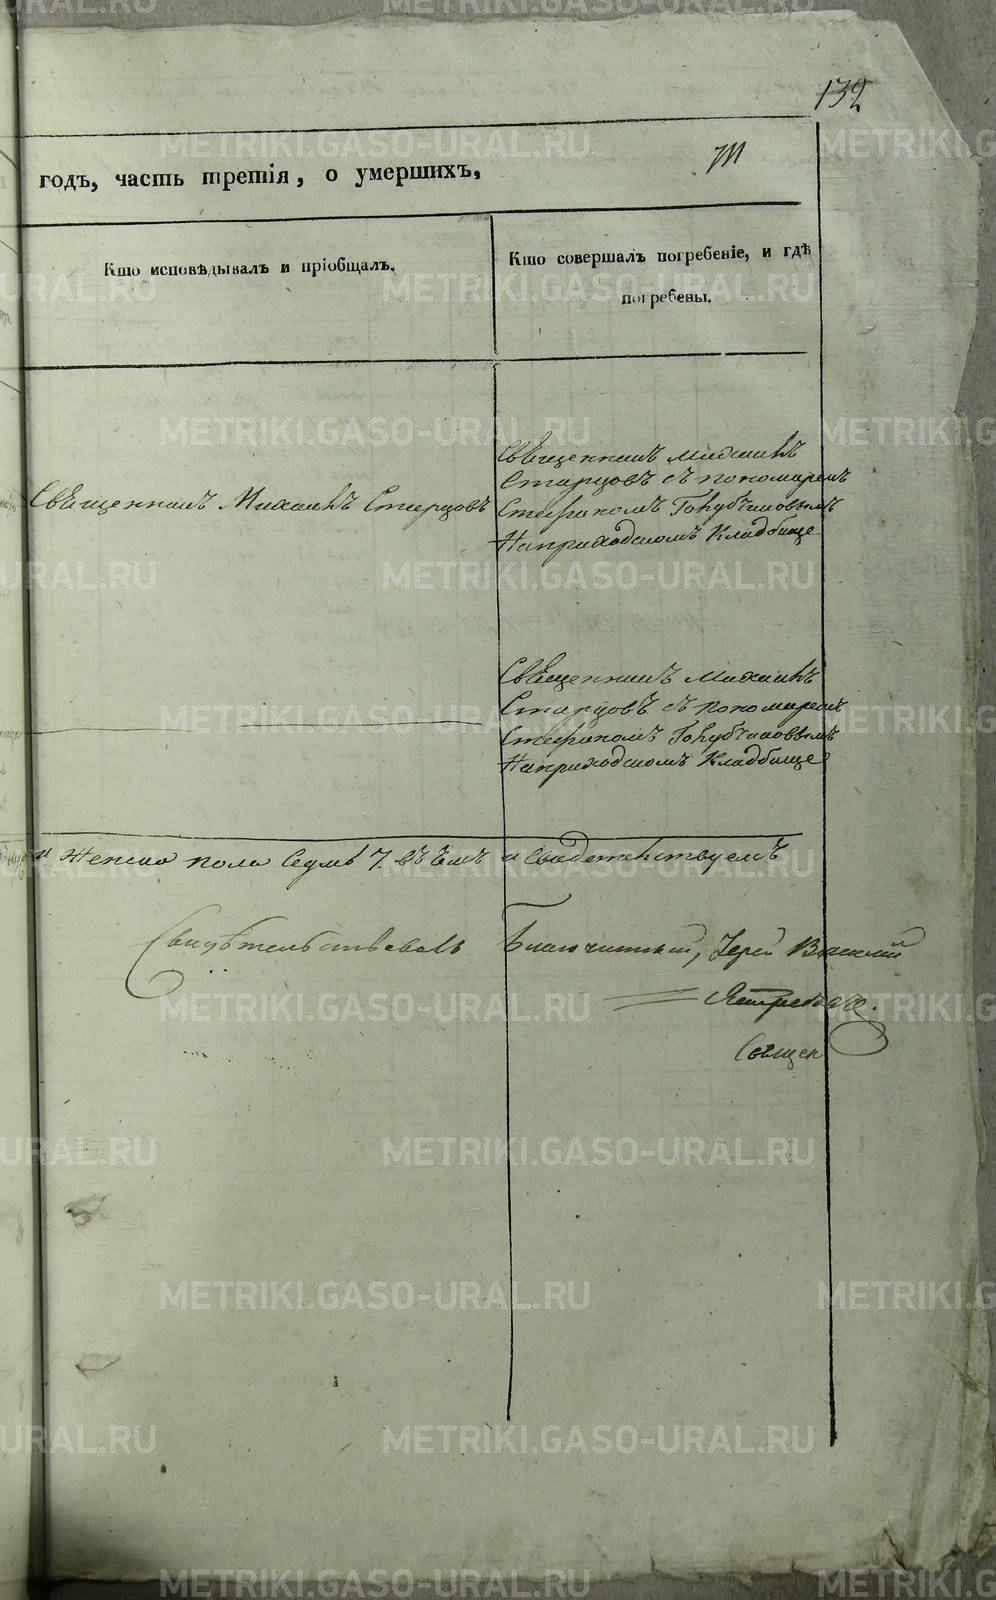 132
годъ, часть третія, о умершихъ,
Кто исповѣдывалъ и пріобщалъ.
Кто совершалъ погребеніе, и гдѣ
погребены.
Священникъ Михаилъ
Старцовъ съ пономаремъ
Священникъ Михаилъ Старцовъ
Стефаномъ Голубчиковымъ
На приходскомъ Кладбище
Священникъ Михаилъ
Старцовъ съ пономаремъ
Стефаномъ Голубчиковымъ
На приходскомъ Кладбище
и женска пола Седмь 7 въ ѣмъ и свидетельствуемъ
Свидѣтельствовалъ Благочинный, Іерей Василій
Ястребовъ.
Священ
METRIKI.GASO-URAL.RU